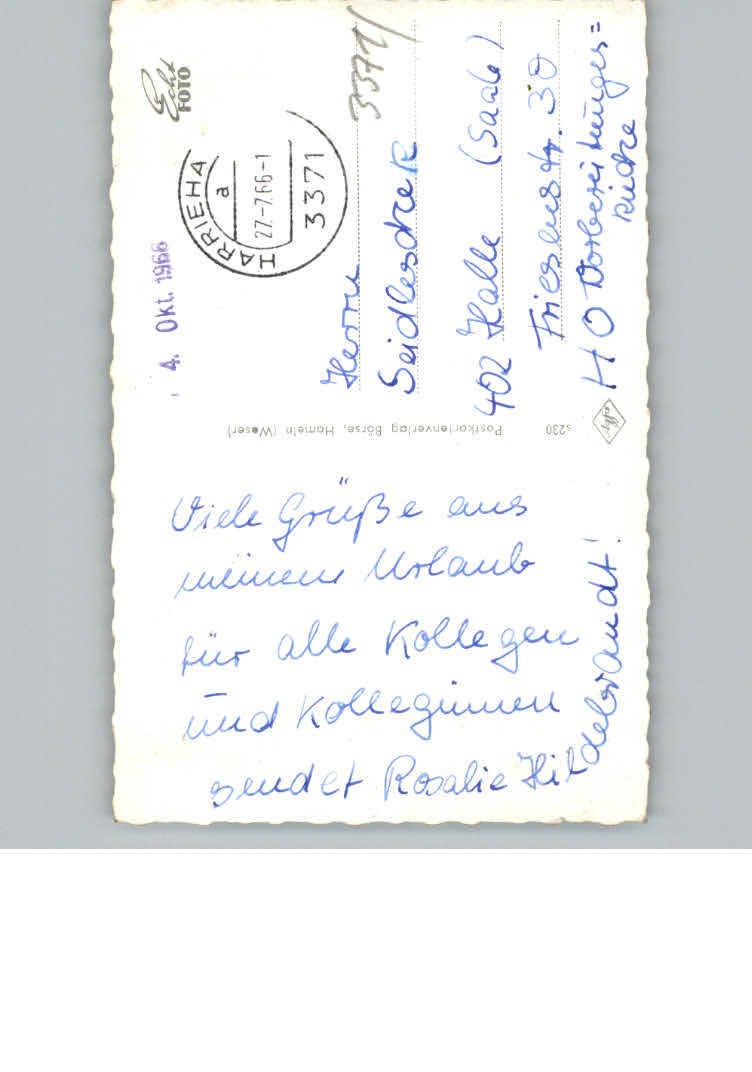 Echt
FOTO
4. Okt. 1966
HARRIEHA
a
27.-7.66-1
3371
3371/
Herrn
402 Halle (Saale)
Friesenstr. 30
HO Vorbereitungs=
küche
s230 Postkartenverlag Börse, Hameln (Weser)
Viele Grüße aus
meinem Urlaub
für alle Kollegen
und Kolleginnen
sendet Rosalie Hildebrandt!